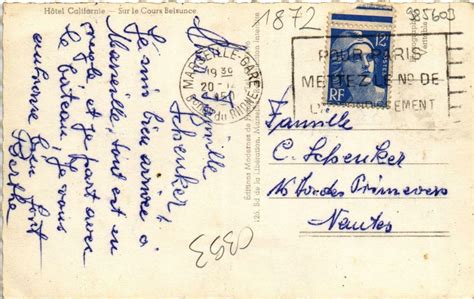 Hôtel Californie - Sur le Cours Belsunce
1872
985603
Chère Famille
Schenker
Je suis bien arrivée à
Marseille, tout est en
règle et je part avec
le bateau. Je vous
embrasse bien fort
Berthe
MARSEILLE-GARE
19 30
20 - 12
1951
Bches du RHONE
Editions Modernes
Bd de la Libération, Marseille
Photographie
Véritable
12F
RF
POUR PARIS
METTEZ LE No DE
L'ARRONDISSEMENT
Famille
C. Schenker
16 des Primevères
Nantes
0393